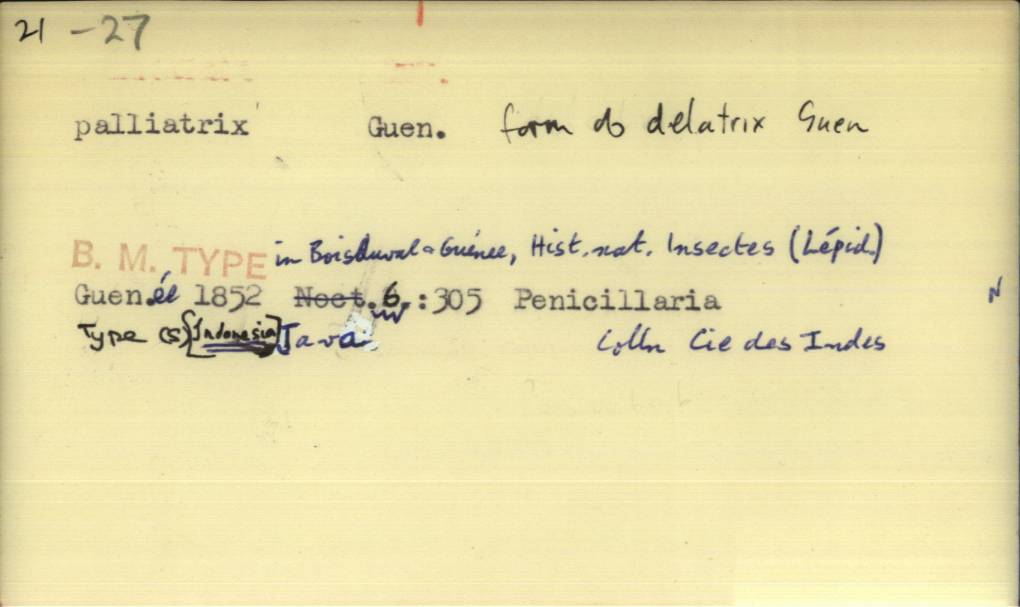 21 -27
palliatrix Guen. form of delatrix Guen
B. M. TYPE in Boisduval & Guénee, Hist. nat. Insectes (Lépid.)
Guenée 1852 Noct. 6.:305 Penicillaria N
Type (s) [Indonesia] Java Colln Cie des Indes